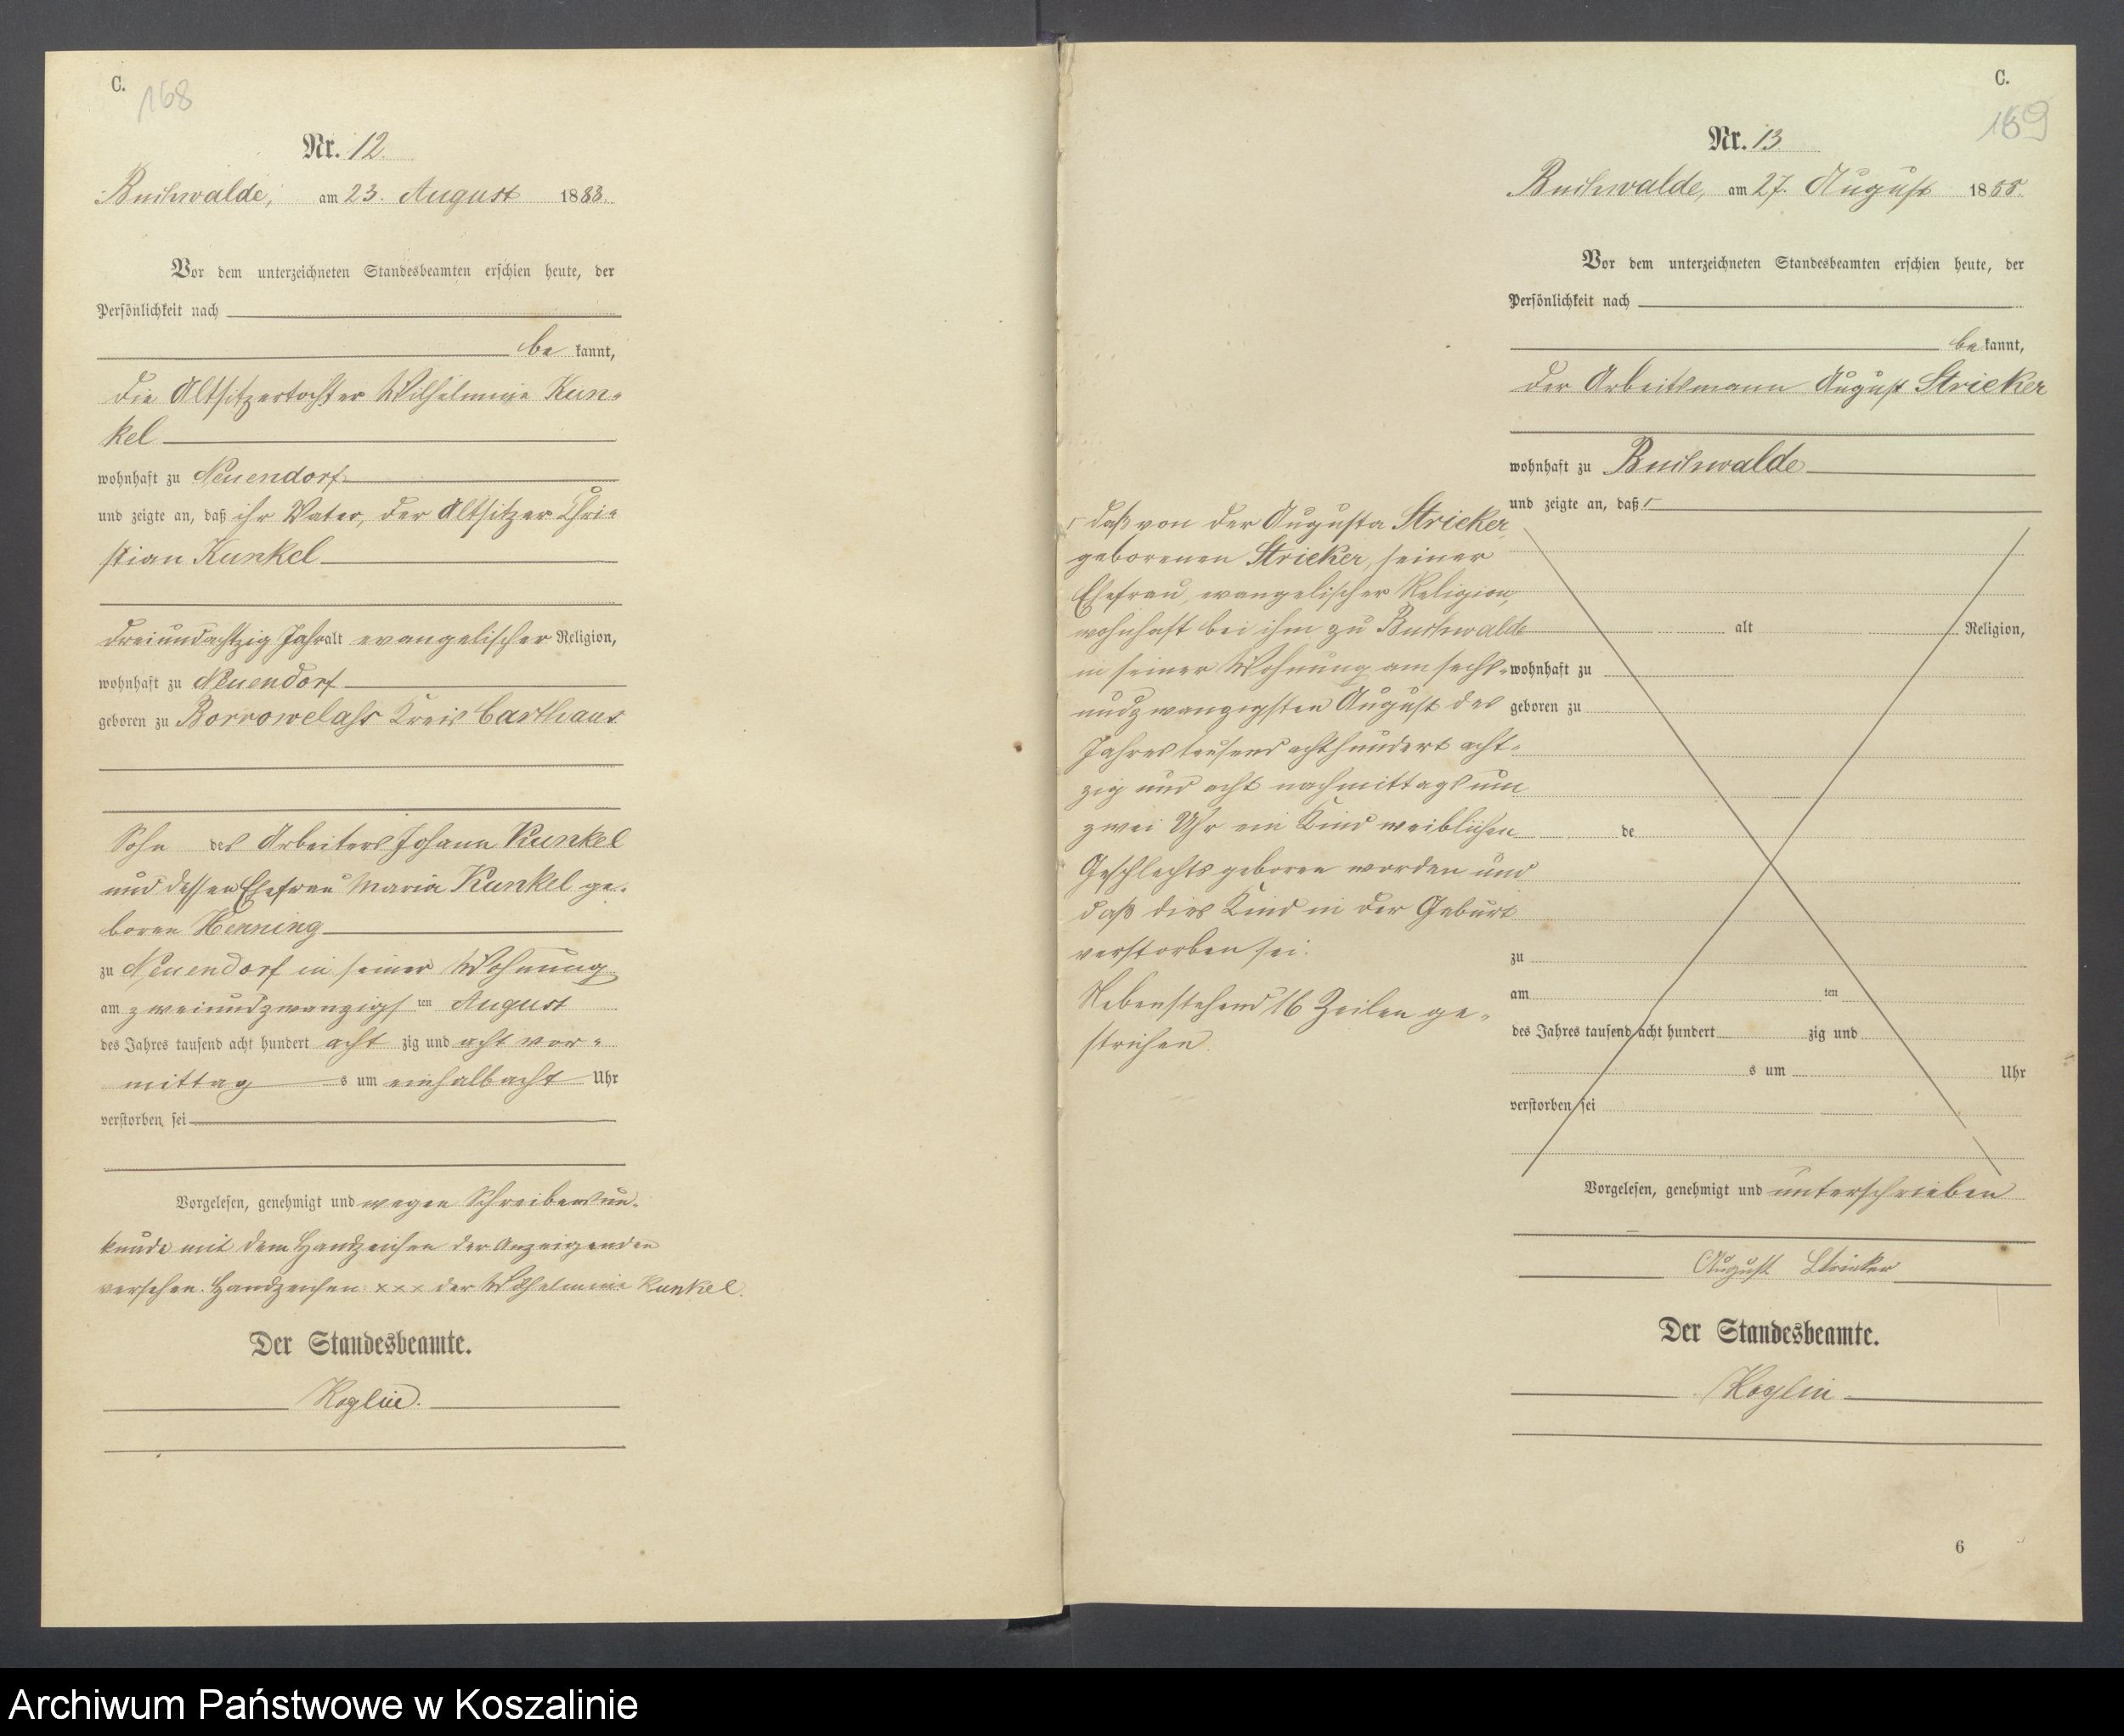 C.
168
Nr. 12.
Buchwalde, am 23. August 1888.
Vor dem unterzeichneten Standesbeamten erschien heute, der
Persönlichkeit nach
be kannt,
die Altsitzertochter Wilhelmine Kun-
kel
wohnhaft zu Neuendorf
und zeigte an, daß ihr Vater, der Altsitzer Chri-
stian Kunkel
dreiundachtzig Jahr alt evangelischer Religion,
wohnhaft zu Neuendorf
geboren zu Borrowelass Kreis Carthaus
Sohn des Arbeiters Johann Kunkel
und dessen Ehefrau Maria Kunkel ge-
boren Henning
zu Neuendorf in seiner Wohnung
am zweiundzwanzigsten August
des Jahres tausend acht hundert acht zig und acht vor-
mittag s um einhalbacht Uhr
verstorben sei
Vorgelesen, genehmigt und wegen Schreibensun-
kunde mit dem Handzeichen der Anzeigenden
versehen. Handzeichen xxx der Wilhelmine Kunkel.
Der Standesbeamte.
Koglin.
C.
169
Nr. 13.
Buchwalde, am 27. August 1888.
Vor dem unterzeichneten Standesbeamten erschien heute, der
Persönlichkeit nach
be kannt,
der Arbeitsmann August Stricker
wohnhaft zu Buchwalde
und zeigte an, daß Γ
Γ daß von der Augusta Stricker
geborenen Stricker, seiner
Ehefrau, evangelischer Religion,
wohnhaft bei ihm zu Buchwalde
in seiner Wohnung am sechs-
undzwanzigsten August des
Jahres tausend achthundert acht-
zig und acht nachmittags um
zwei Uhr ein Kind weiblichen
Geschlechts geboren worden und
daß dies Kind in der Geburt
verstorben sei.
Nebenstehend 16 Zeilen ge-
strichen.
alt Religion,
wohnhaft zu
geboren zu
de
zu
am ten
des Jahres tausend acht hundert zig und
s um Uhr
verstorben sei
Vorgelesen, genehmigt und unterschrieben
August Stricker
Der Standesbeamte.
Koglin
6
Archiwum Państwowe w Koszalinie